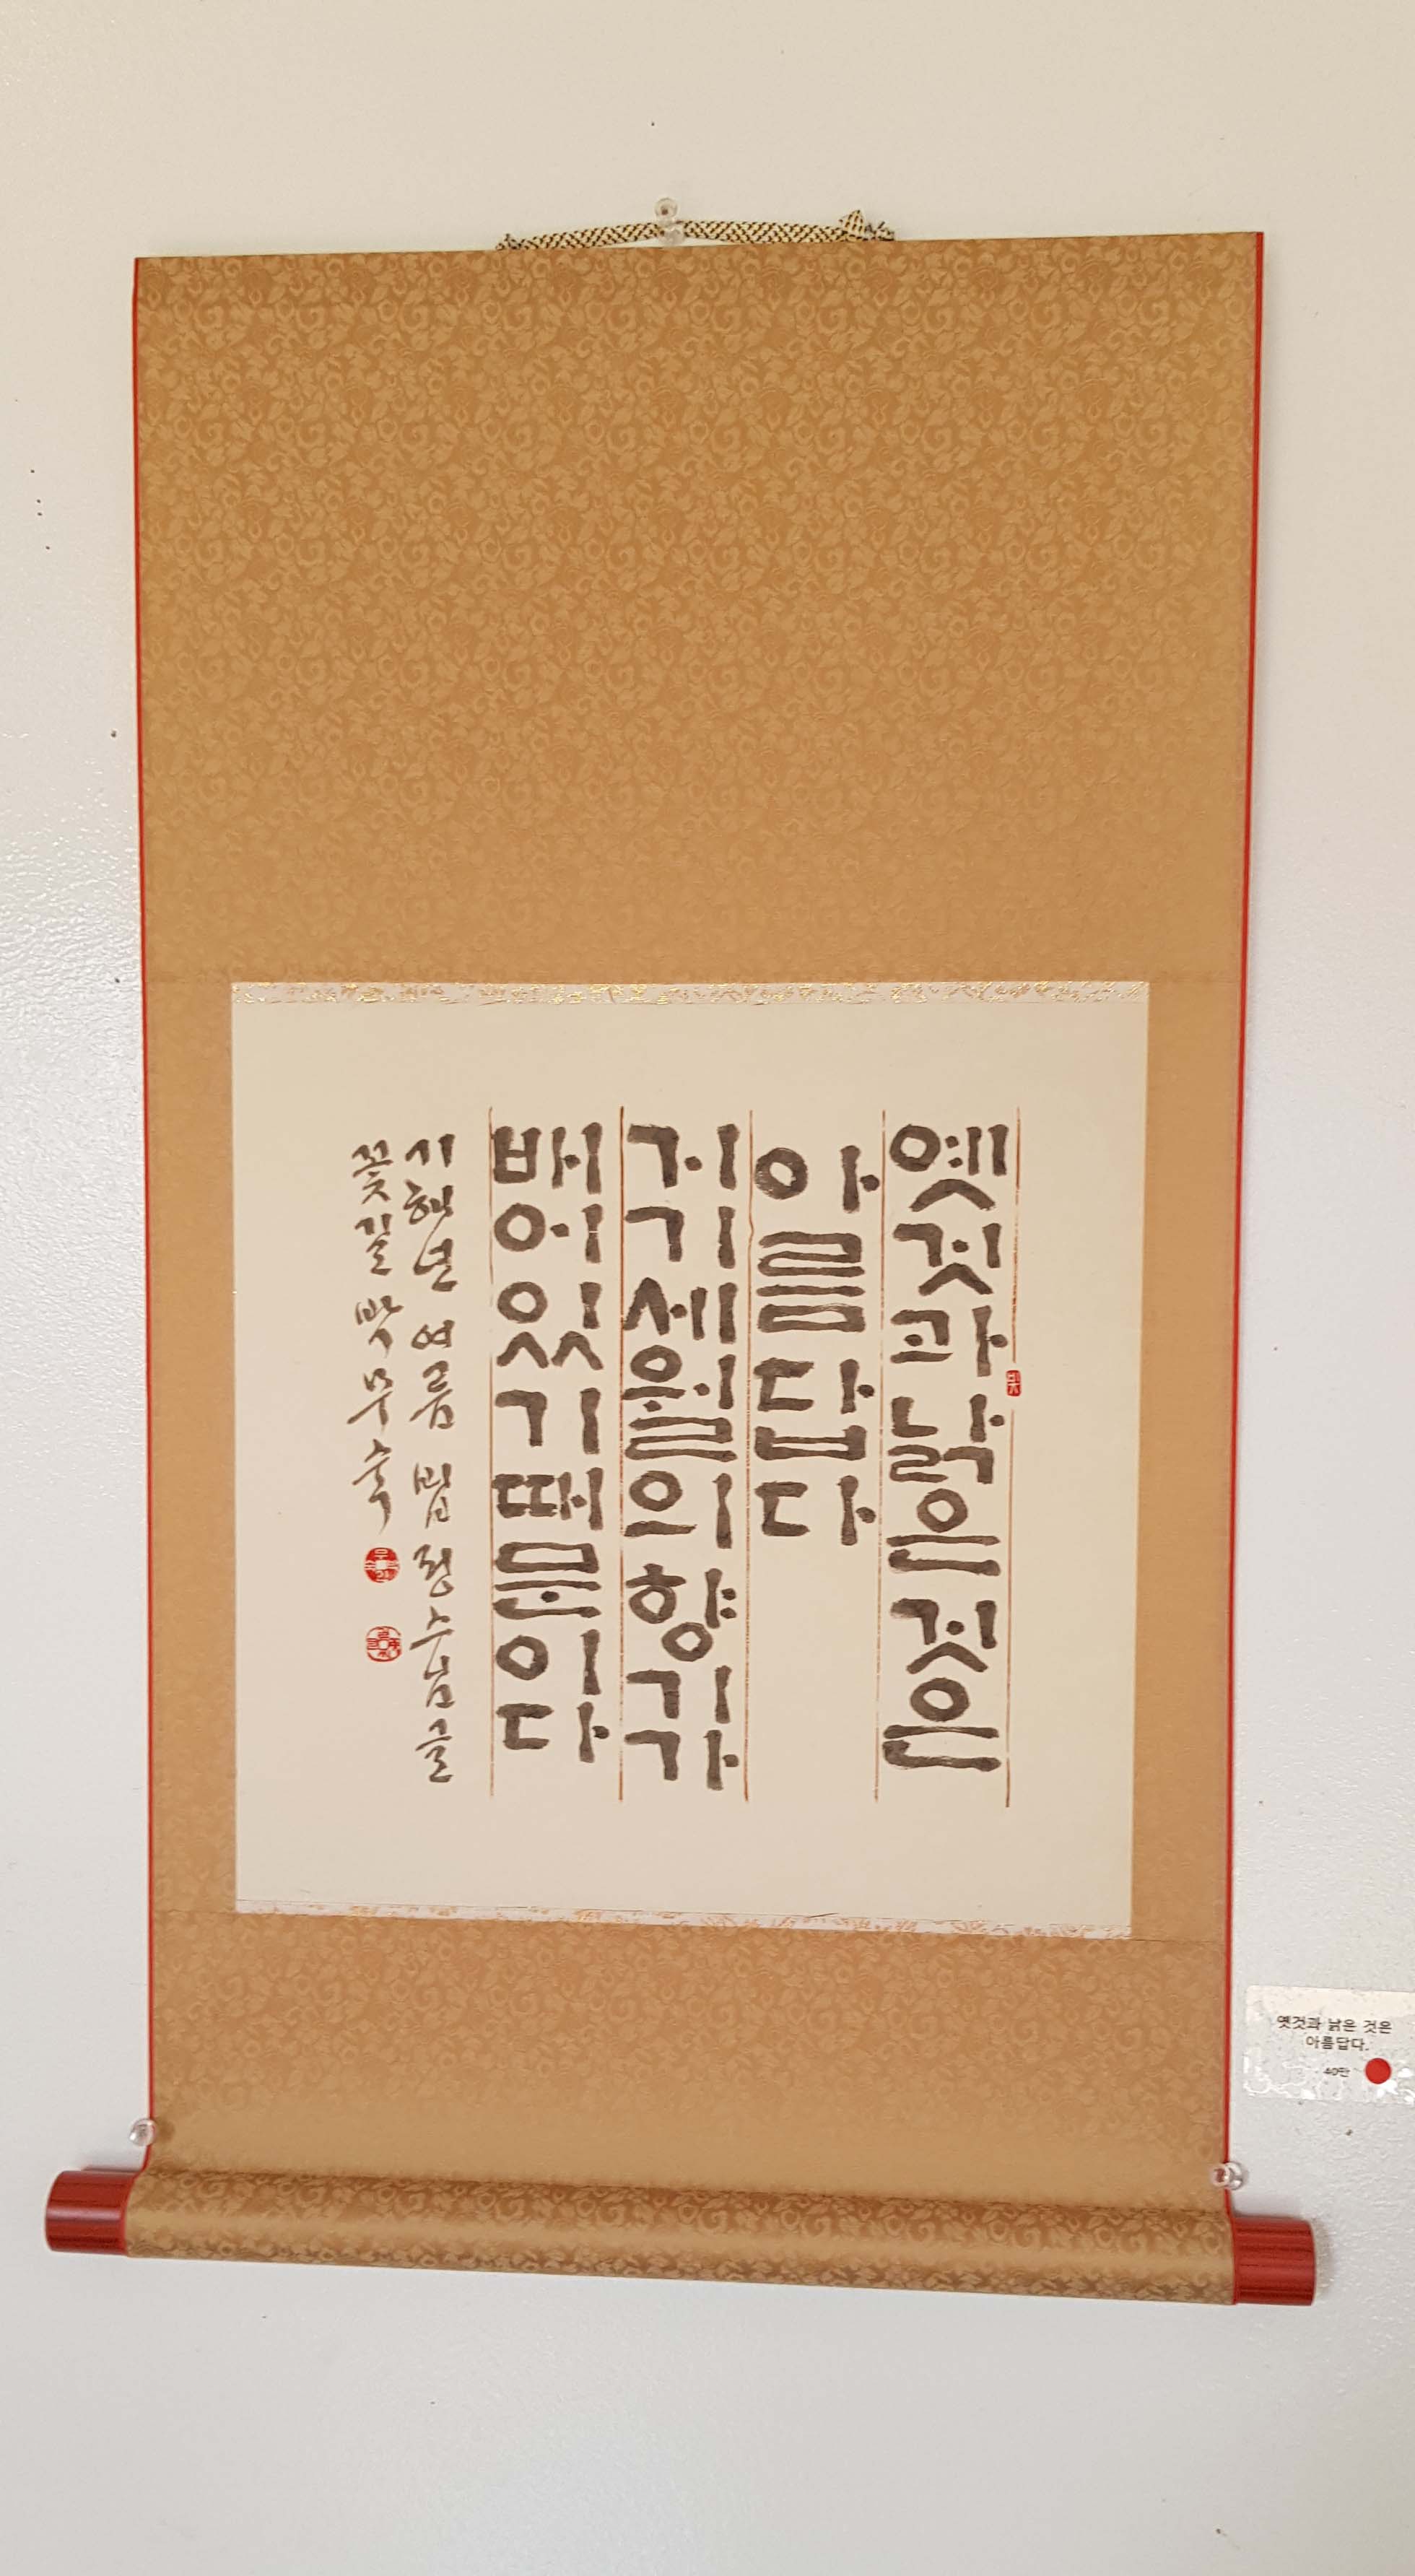 옛것과낡은것은
아름답다
거기세월의향기가
배어있기때문이다
기해년 여름 법정스님글
꽃길 박무숙
옛것과 낡은 것은
아름답다.
40만